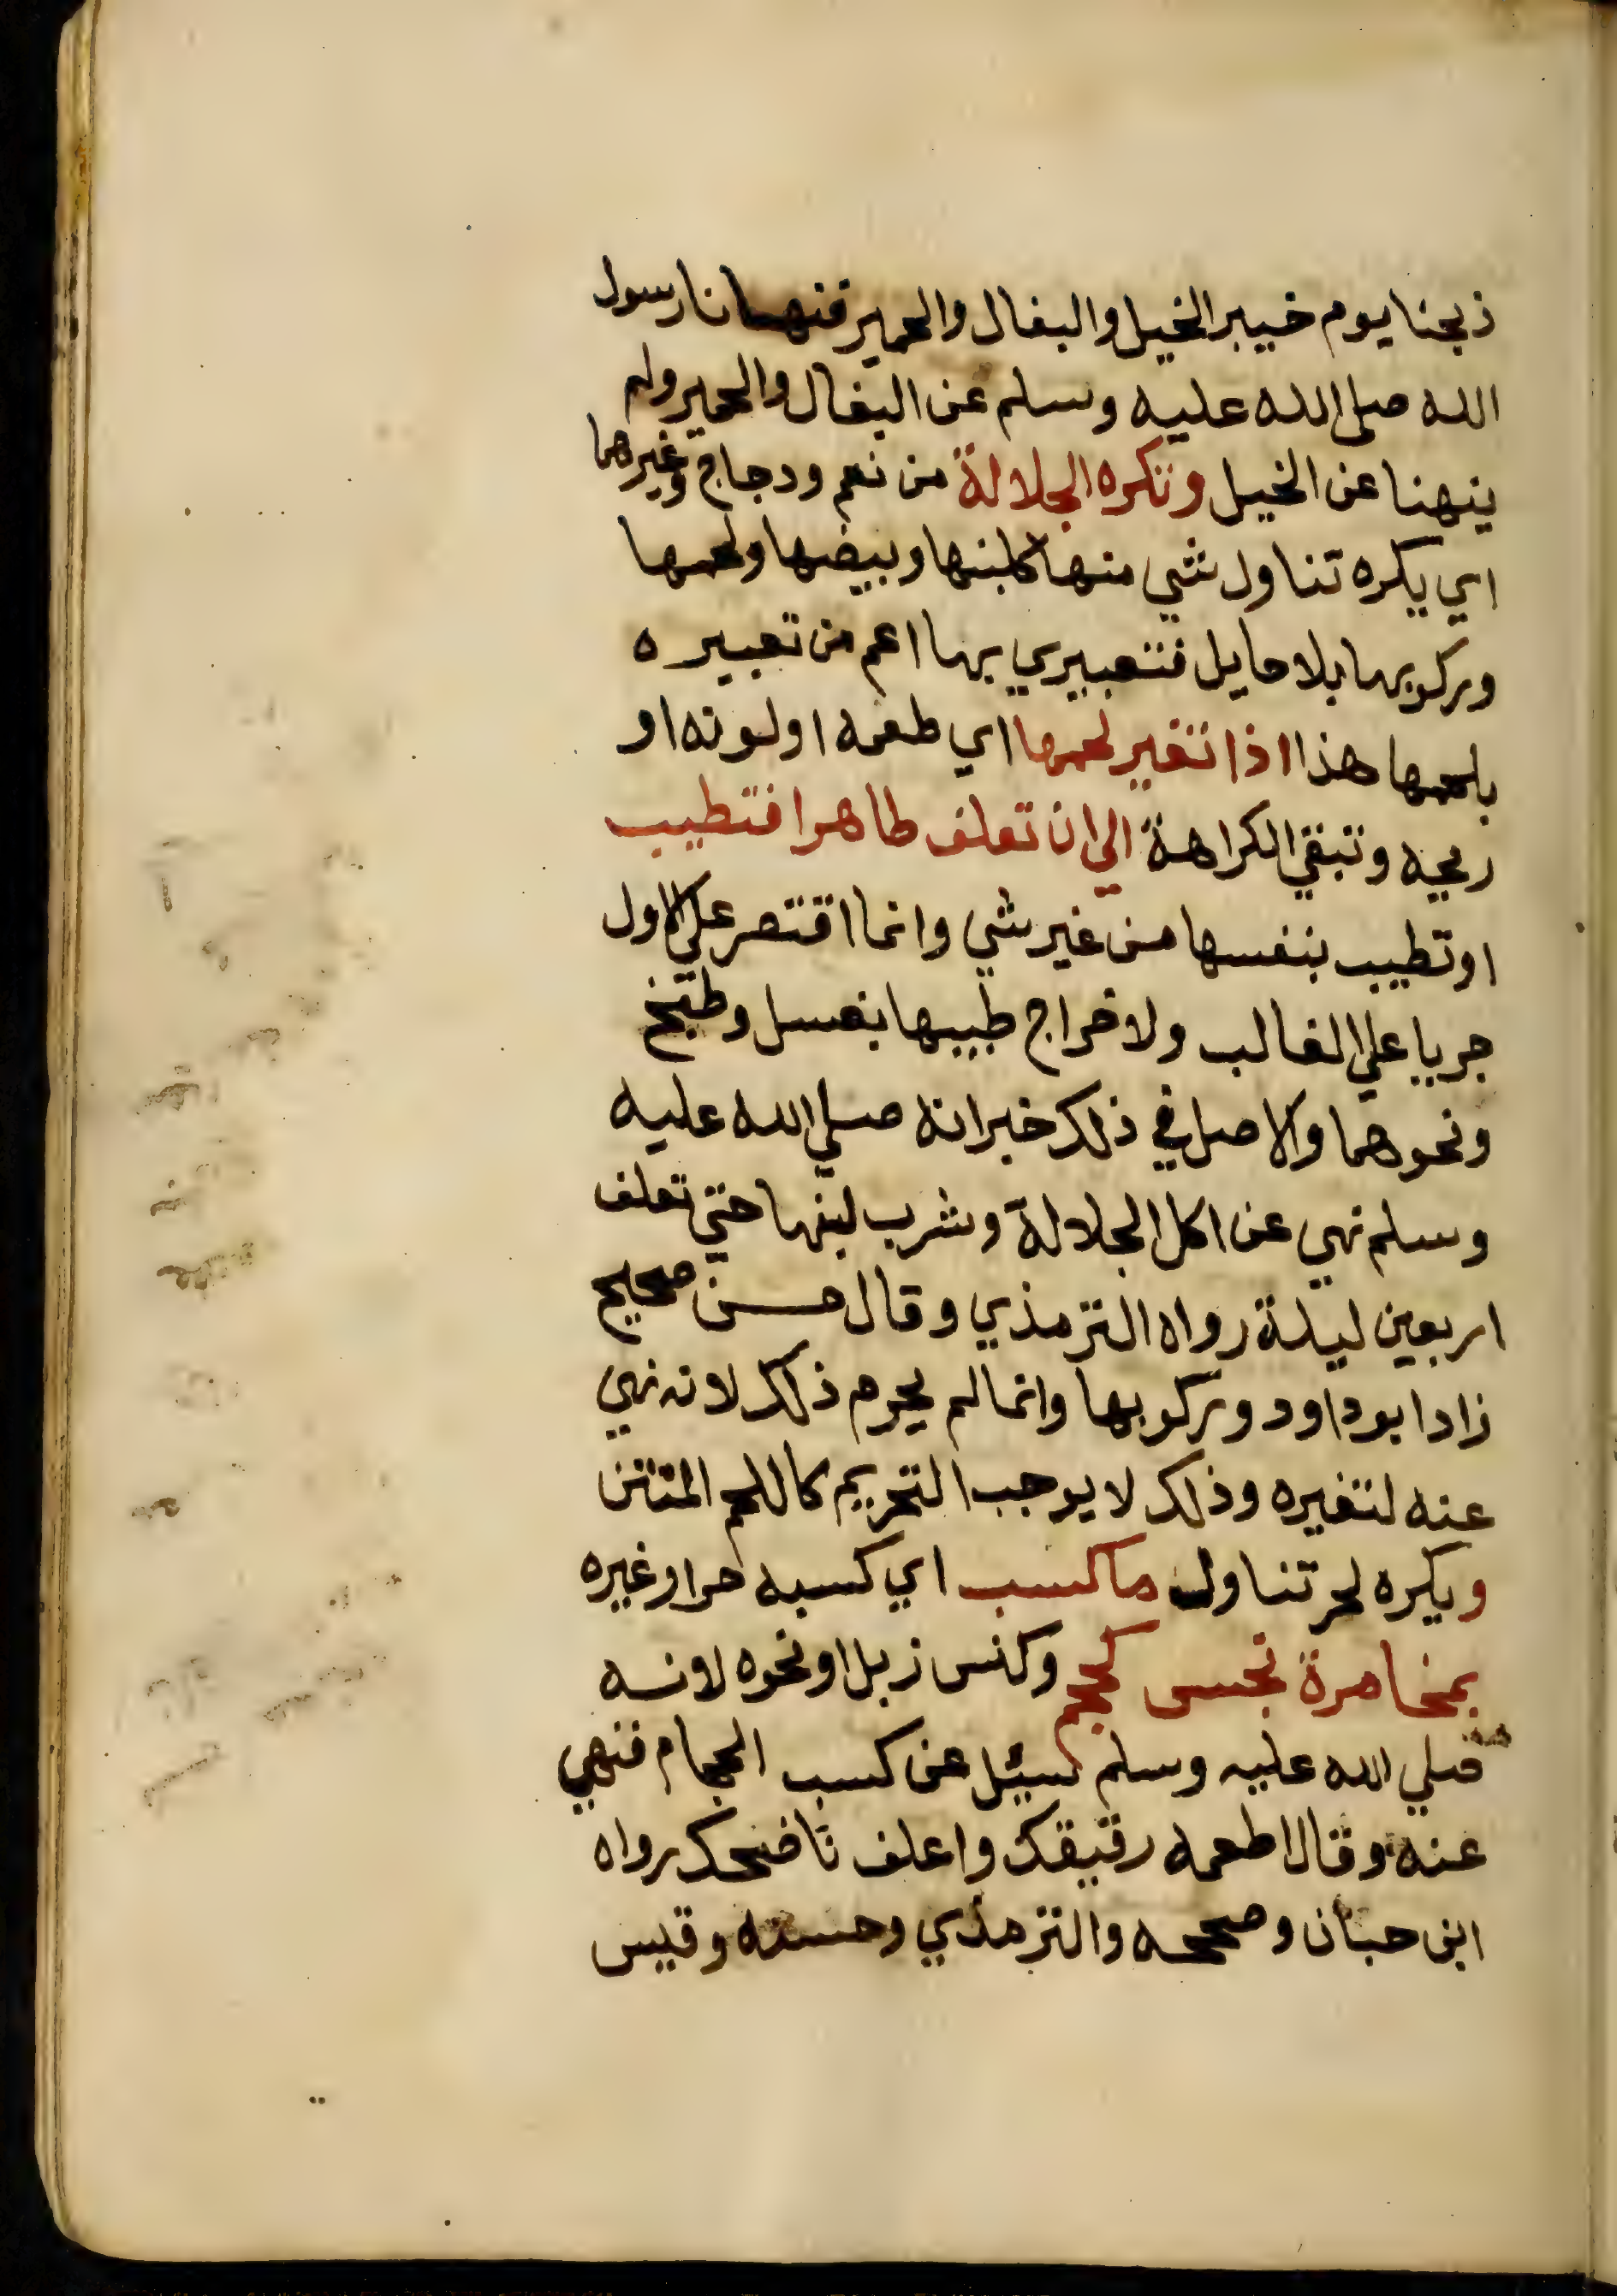 ذبحنا يوم خيبر الخيل والبغال والحمير فنهانا رسول
الله صلى الله عليه وسلم عن البغال والحمير ولم
ينهنا عن الخيل وتكره الجلالة من نعم ودجاج وغيرهما
اي يكره تناول شي منها كلبنها وبيضها ولحمها
وركوبها بلا حايل فتعبيري بها اعم من تعبيره
بلحمها هذا اذا تغير لحمها اي طعمه او لونه او
ريحه وتبقي الكراهة الي ان تعلف طاهرا فتطيب
او تطيب بنفسها من غير شي وانما اقتصر علي الاول
جريا علي الغالب ولاخراج طيبها بغسل وطبخ
ونحوهما والاصل في ذلك خبر انه صلي الله عليه
وسلم نهي عن اكل الجلالة وشرب لبنها حتي تعلف
اربعين ليلة رواه الترمذي وقال حسن صحيح
زاد ابو داود وركوبها وانما لم يحرم ذلك لانه نهي
عنه لتغيره وذلك لا يوجب التحريم كاللحم المنتن
ويكره لحر تناول ما كسب اي كسبه حر او غيره
بمخامرة نجس كحجم وكنس زبل او نحوه لانه
صلي الله عليه وسلم سيئل عن كسب الحجام فنهي
عنه وقال اطعمه رقيقك واعلف ناضحك رواه
ابن حبان وصححه والترمذي وحسنه وقيس